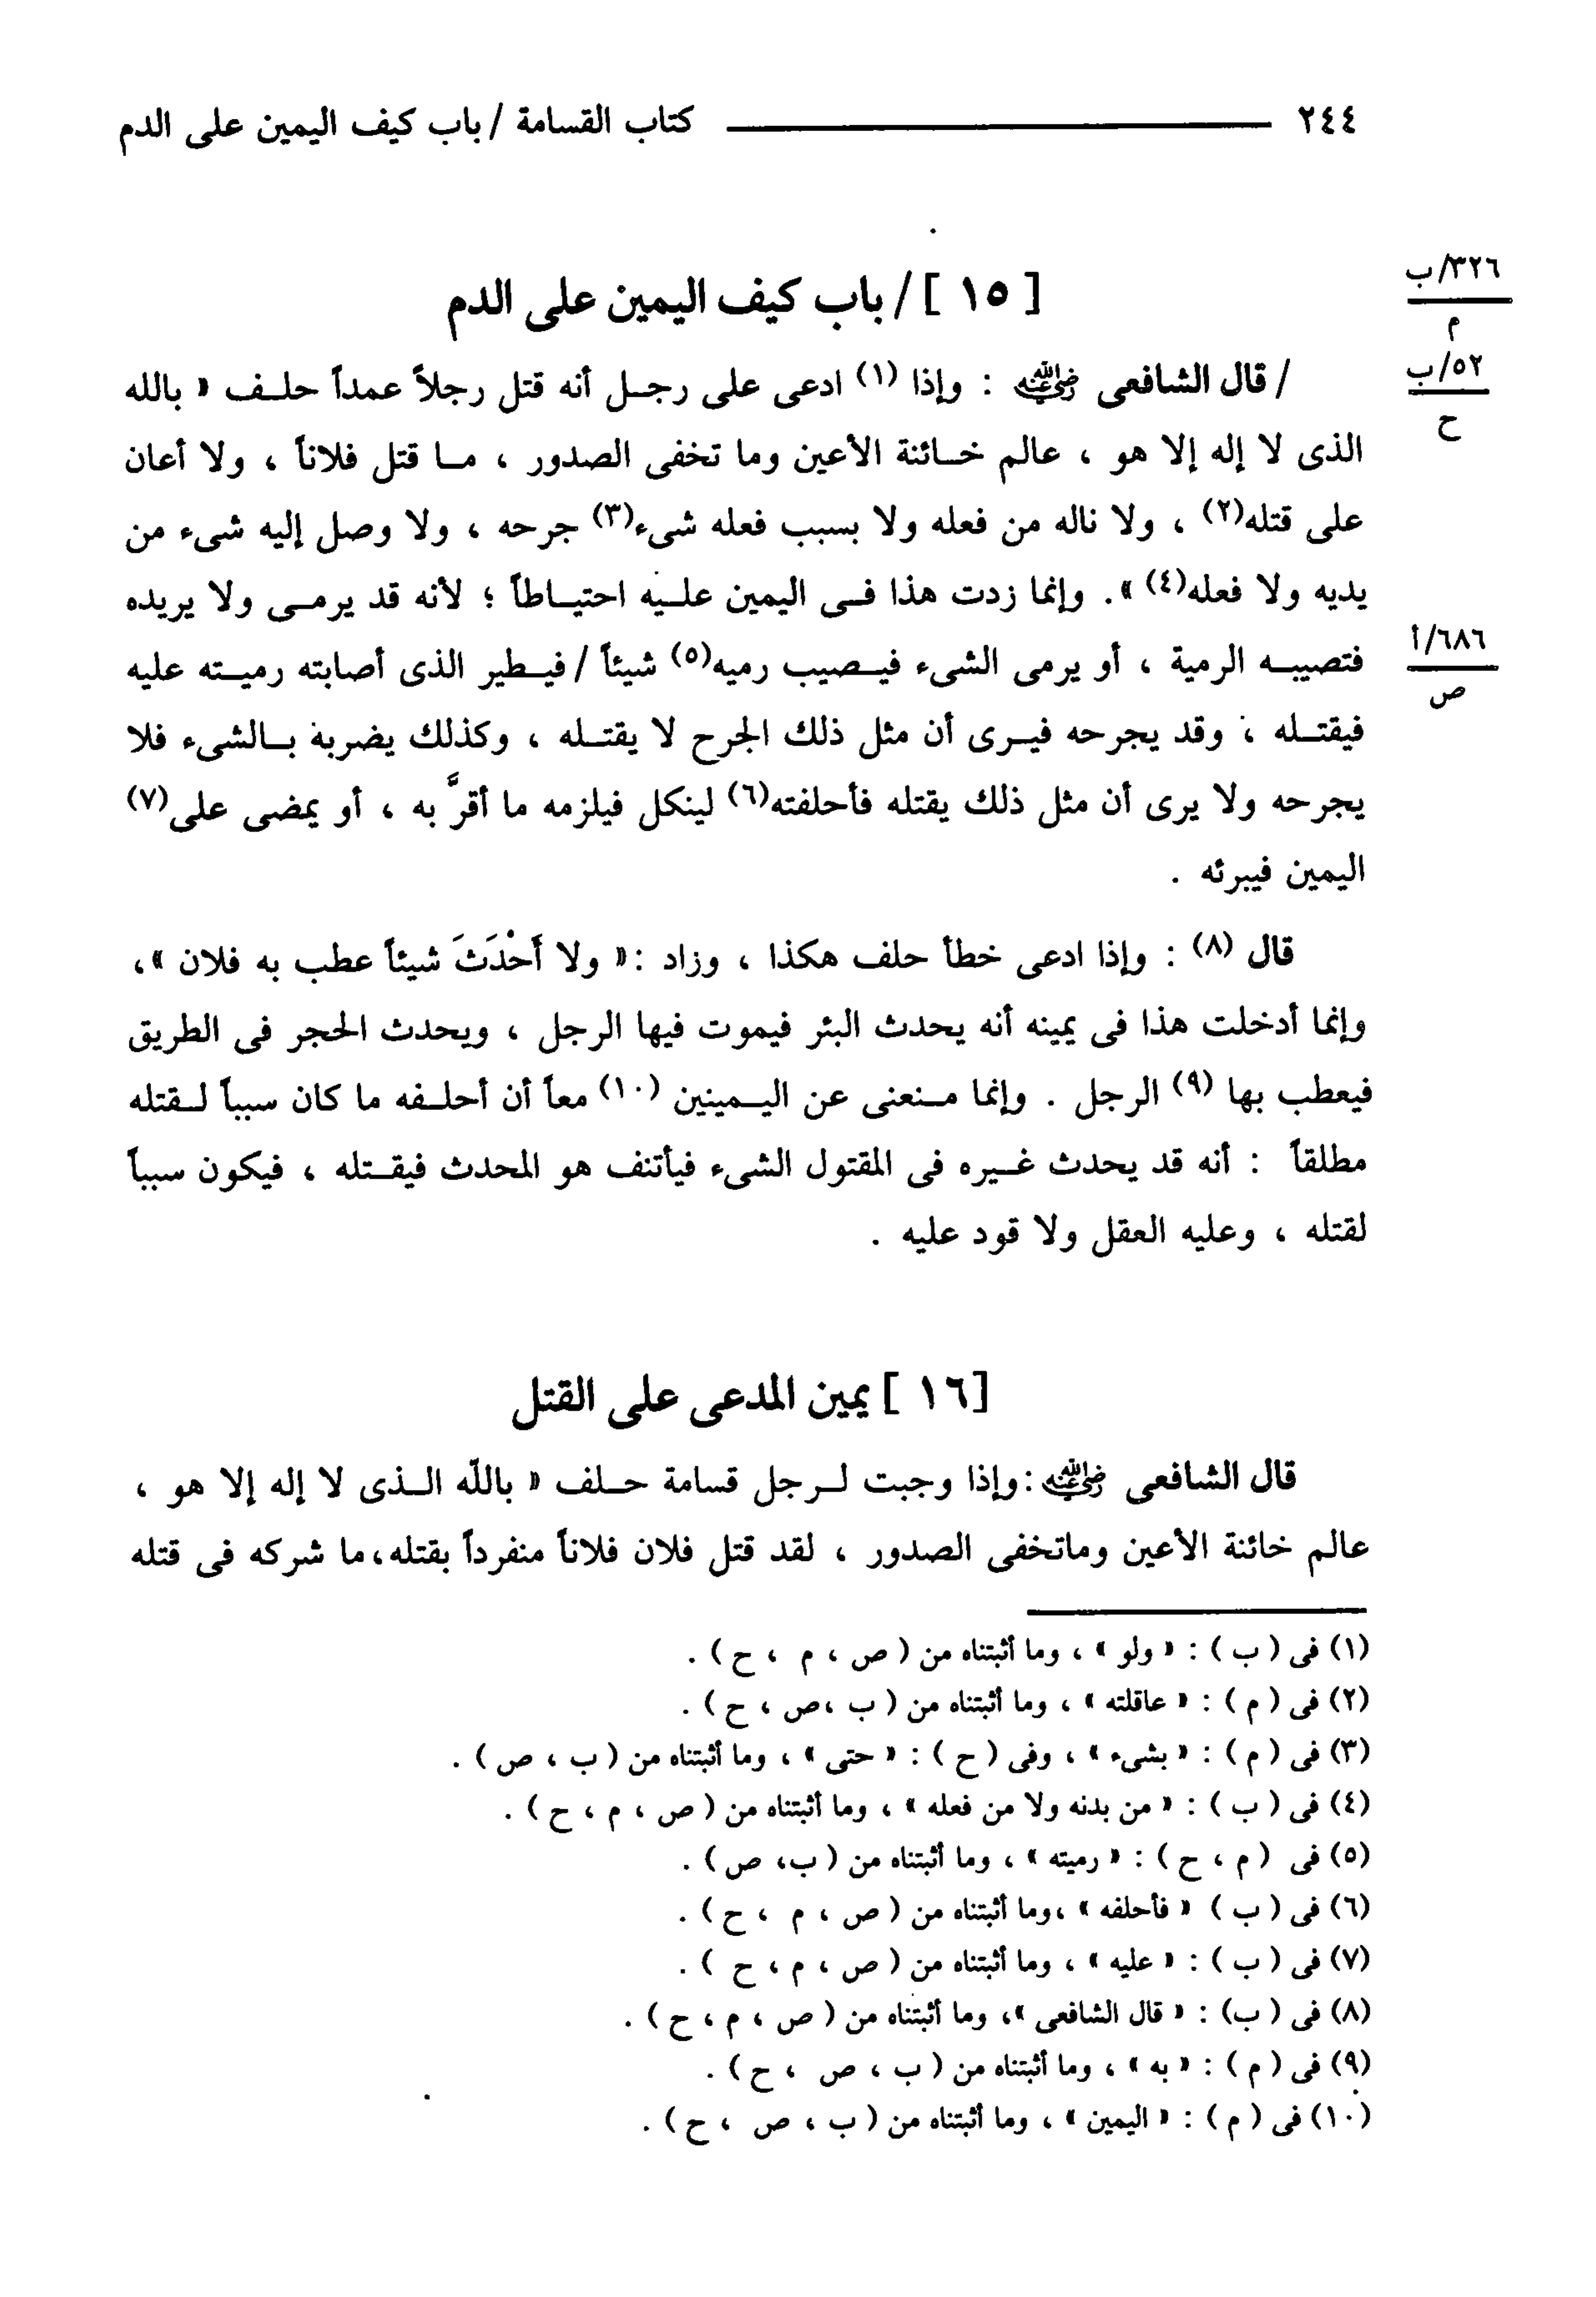 ٢٤٤ كتاب القسامة / باب كيف اليمين على الدم
٣٢٦/ب
[ ١٥ ] / باب كيف اليمين على الدم
م
/ قال الشافعى رضي الله عنه : وإذا (١) ادعى على رجل أنه قتل رجلاً عمداً حلف « بالله
٥٢/ب
ح
الذى لا إله إلا هو ، عالم خائنة الأعين وما تخفى الصدور ، ما قتل فلاناً ، ولا أعان
على قتله(٢) ، ولا ناله من فعله ولا بسبب فعله شىء(٣) جرحه ، ولا وصل إليه شىء من
يديه ولا فعله(٤) ». وإنما زدت هذا فى اليمين عليه احتياطاً ؛ لأنه قد يرمى ولا يريده
٦٨٦/أ
ص
فتصيبه الرمية ، أو يرمى الشىء فيصيب رميه(٥) شيئاً / فيطير الذى أصابته رميته عليه
فيقتله ، وقد يجرحه فيرى أن مثل ذلك الجرح لا يقتله ، وكذلك يضربه بالشىء فلا
يجرحه ولا يرى أن مثل ذلك يقتله فأحلفته(٦) لينكل فيلزمه ما أقرَّ به ، أو يمضى على(٧)
اليمين فيبرئه .
قال (٨) : وإذا ادعى خطأ حلف هكذا ، وزاد :« ولا أَحْدَثَ شيئاً عطب به فلان »،
وإنما أدخلت هذا فى يمينه أنه يحدث البئر فيموت فيها الرجل ، ويحدث الحجر فى الطريق
فيعطب بها (٩) الرجل . وإنما منعنى عن اليمينين (١٠) معاً أن أحلفه ما كان سبباً لقتله
مطلقاً : أنه قد يحدث غيره فى المقتول الشىء فيأتنف هو المحدث فيقتله ، فيكون سبباً
لقتله ، وعليه العقل ولا قود عليه .
[١٦ ] يمين المدعى على القتل
قال الشافعى رضي الله عنه :وإذا وجبت لرجل قسامة حلف « باللّه الذى لا إله إلا هو ،
عالم خائنة الأعين وماتخفى الصدور ، لقد قتل فلان فلاناً منفرداً بقتله،ما شركه فى قتله
(١) فى ( ب ) : « ولو » ، وما أثبتناه من ( ص ، م ، ح ) .
(٢) فى ( م ) : « عاقلته » ، وما أثبتناه من ( ب ،ص ، ح ) .
(٣) فى ( م ) : « بشىء » ، وفى ( ح ) : « حتى » ، وما أثبتناه من ( ب ، ص ) .
(٤) فى ( ب ) : « من بدنه ولا من فعله » ، وما أثبتناه من ( ص ، م ، ح ) .
(٥) فى ( م ، ح ) : « رميته » ، وما أثبتناه من ( ب، ص ) .
(٦) فى ( ب ) « فأحلفه » ،وما أثبتناه من ( ص ، م ، ح ) .
(٧) فى ( ب ) : « عليه » ، وما أثبتناه من ( ص ، م ، ح ) .
(٨) فى ( ب) : « قال الشافعى »، وما أثبتناه من ( ص ، م ، ح ) .
(٩) فى ( م ) : « به » ، وما أثبتناه من ( ب ، ص ، ح ) .
(١٠) فى ( م ) : « اليمين » ، وما أثبتناه من ( ب ، ص ، ح ) .